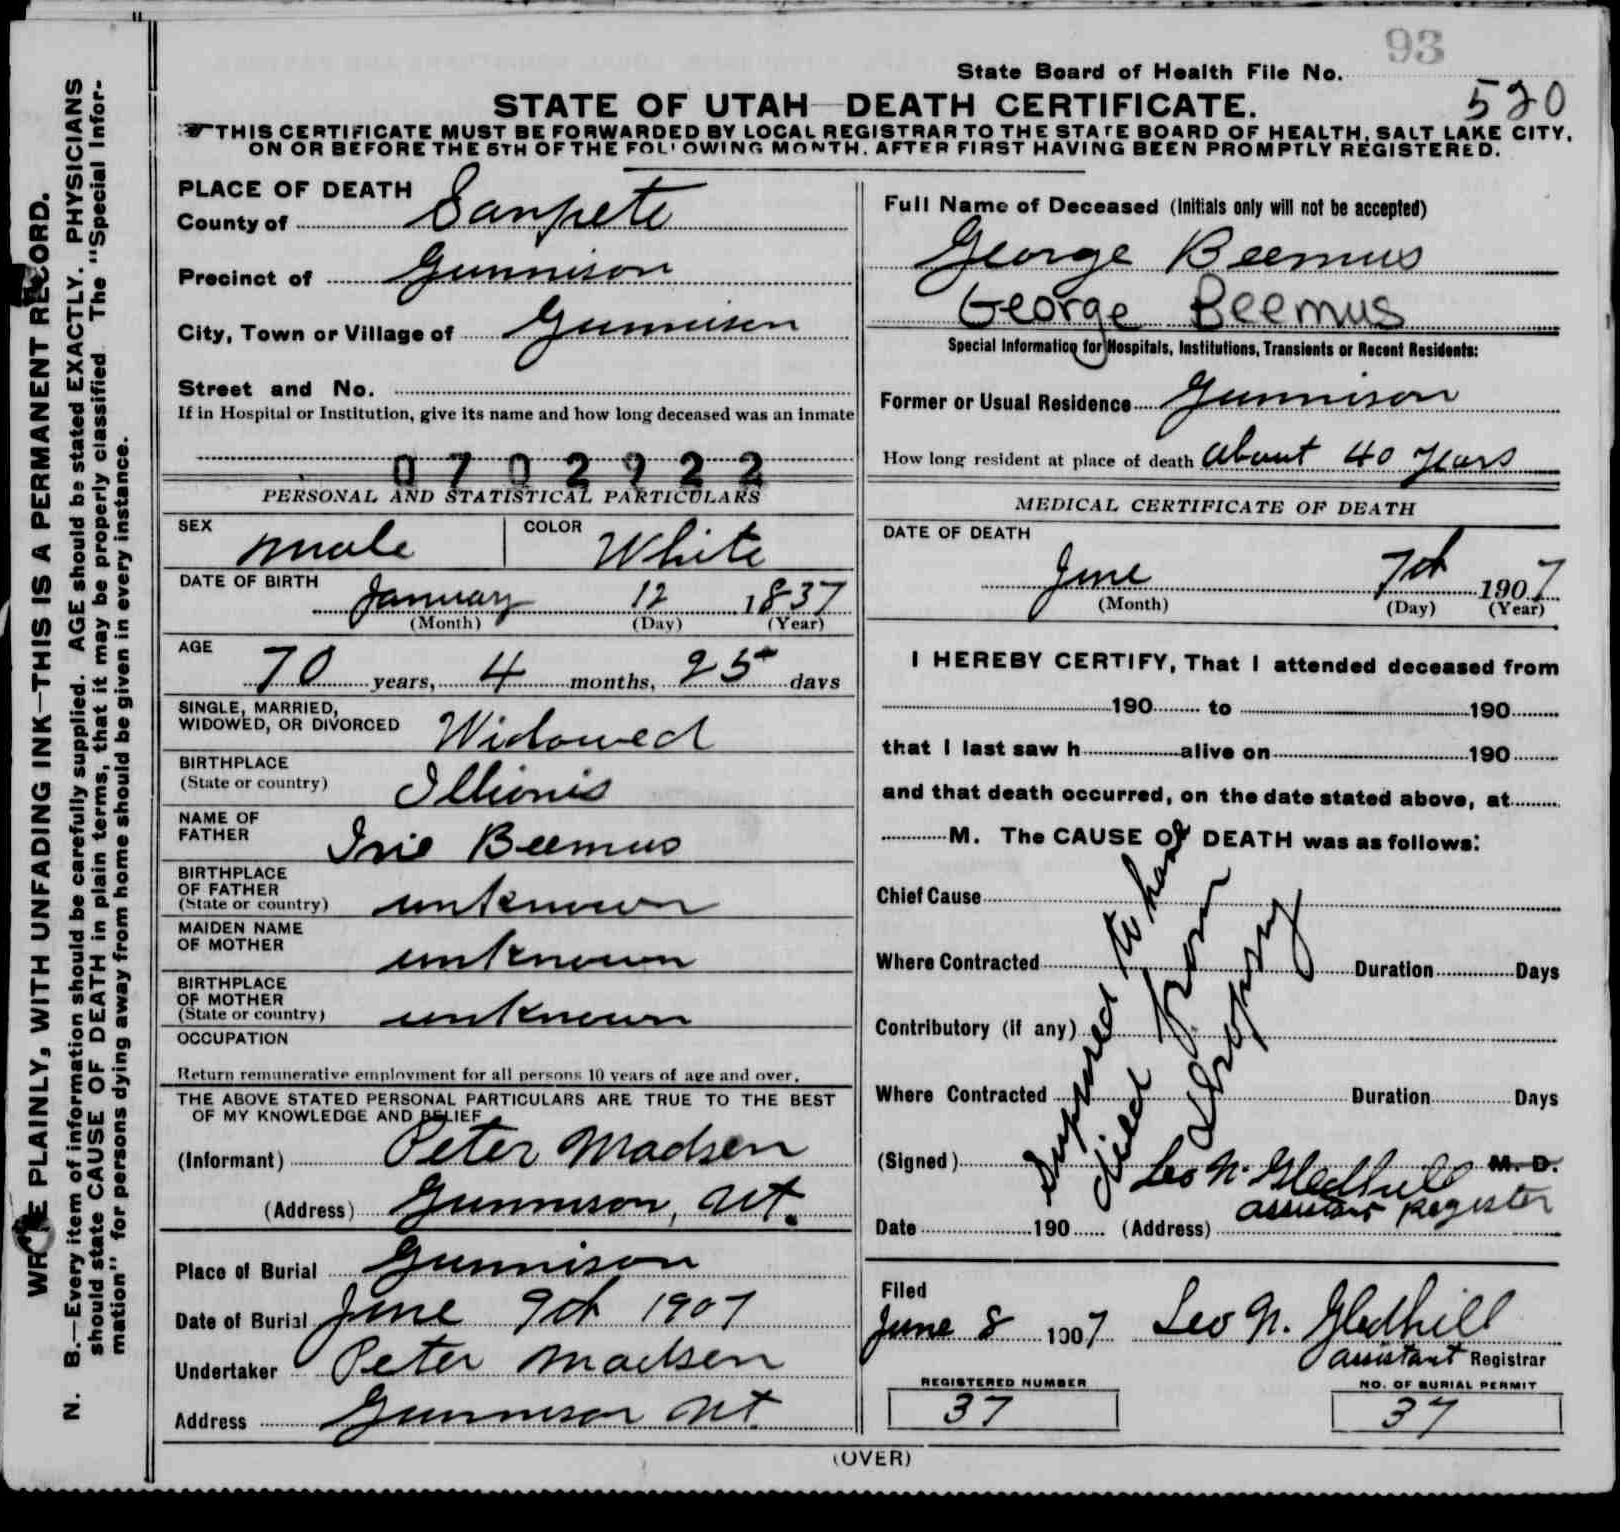 93
State Board of Health File No.
520
STATE OF UTAH—DEATH CERTIFICATE.
THIS CERTIFICATE MUST BE FORWARDED BY LOCAL REGISTRAR TO THE STATE BOARD OF HEALTH, SALT LAKE CITY,
ON OR BEFORE THE 5TH OF THE FOLLOWING MONTH, AFTER FIRST HAVING BEEN PROMPTLY REGISTERED.
WRITE PLAINLY, WITH UNFADING INK—THIS IS A PERMANENT RECORD.
N. B.—Every item of information should be carefully supplied. AGE should be stated EXACTLY. PHYSICIANS
should state CAUSE OF DEATH in plain terms, that it may be properly classified. The "Special Infor-
mation" for persons dying away from home should be given in every instance.
PLACE OF DEATH
County of Sanpete
Precinct of Gunnison
City, Town or Village of Gunnison
Street and No.
If in Hospital or Institution, give its name and how long deceased was an inmate
0702922
PERSONAL AND STATISTICAL PARTICULARS
SEX male COLOR White
DATE OF BIRTH
January 12 1837
(Month) (Day) (Year)
AGE
70 years, 4 months, 25 days
SINGLE, MARRIED,
WIDOWED, OR DIVORCED Widowed
BIRTHPLACE
(State or country) Illionis
NAME OF
FATHER Irie Beemus
BIRTHPLACE
OF FATHER
(State or country) unknown
MAIDEN NAME
OF MOTHER unknown
BIRTHPLACE
OF MOTHER
(State or country) unknown
OCCUPATION
Return remunerative employment for all persons 10 years of age and over.
THE ABOVE STATED PERSONAL PARTICULARS ARE TRUE TO THE BEST
OF MY KNOWLEDGE AND BELIEF
(Informant) Peter Madsen
(Address) Gunnison, Ut.
Place of Burial Gunnison
Date of Burial June 9th 1907
Undertaker Peter Madsen
Address Gunnison Ut.
Full Name of Deceased (Initials only will not be accepted)
George Beemus
George Beemus
Special Information for Hospitals, Institutions, Transients or Recent Residents:
Former or Usual Residence Gunnison
How long resident at place of death about 40 years
MEDICAL CERTIFICATE OF DEATH
DATE OF DEATH
June 7th 1907
(Month) (Day) (Year)
I HEREBY CERTIFY, That I attended deceased from
190 to 190
that I last saw h alive on 190
and that death occurred, on the date stated above, at
M. The CAUSE OF DEATH was as follows:
Chief Cause
Where Contracted Duration Days
Contributory (if any)
Where Contracted Duration Days
Supposed to have
died from
dropsy
(Signed) Leo N. Gledhill M. D.
assistant Register
Date 190 (Address)
Filed
June 8 1907 Leo N. Gledhill
assistant Registrar
REGISTERED NUMBER
37
NO. OF BURIAL PERMIT
37
(OVER)